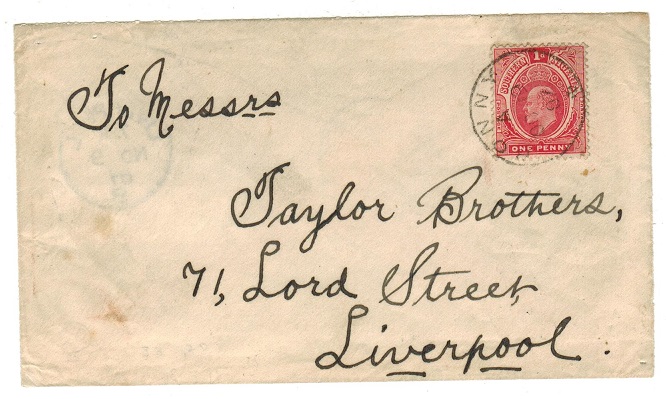 To Messrs
Taylor Brothers,
71, Lord Street
Liverpool.
SOUTHERN 1d NIGERIA
ONE PENNY
BONNY